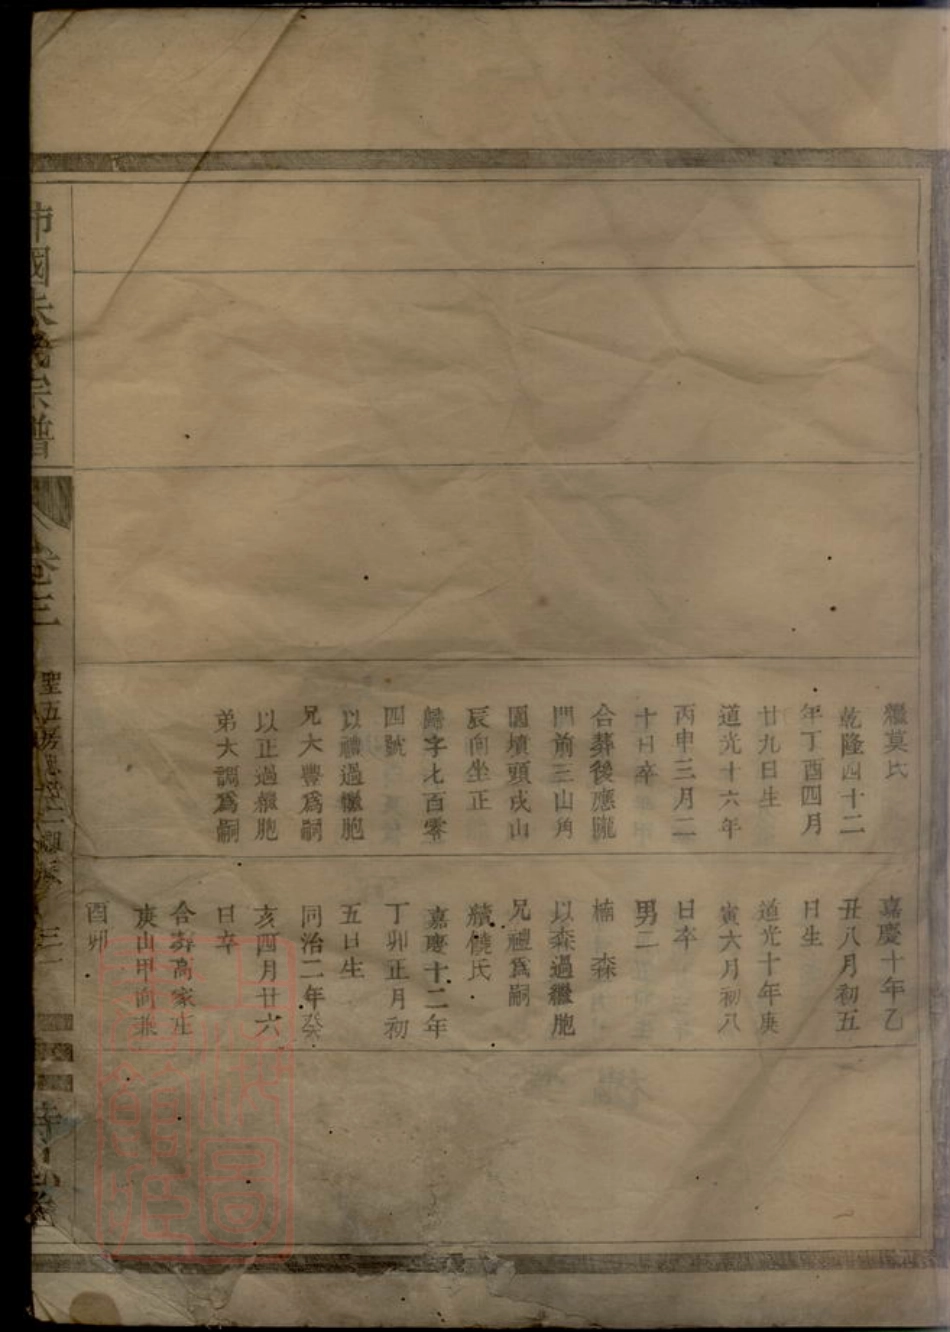 繼莫氏
乾隆四十二
年丁酉四月
廿九日生
道光十六年
丙申三月二
十日卒
合葬後應隴
門前三山角
園墳頭戌山
辰向坐正
歸字七百零
四號
以禮過繼胞
兄大豐爲嗣
以正過繼胞
弟大調爲嗣
嘉慶十年乙
丑八月初五
日生
道光十年庚
寅六月初八
日卒
男二
楠 森
以森過繼胞
兄禮爲嗣
續饒氏
嘉慶十二年
丁卯正月初
五日生
同治二年癸
亥四月廿六
日卒
合葬高家庄
庚山甲向兼
酉卯
國朱 宗譜
卷三
聖五房
三一